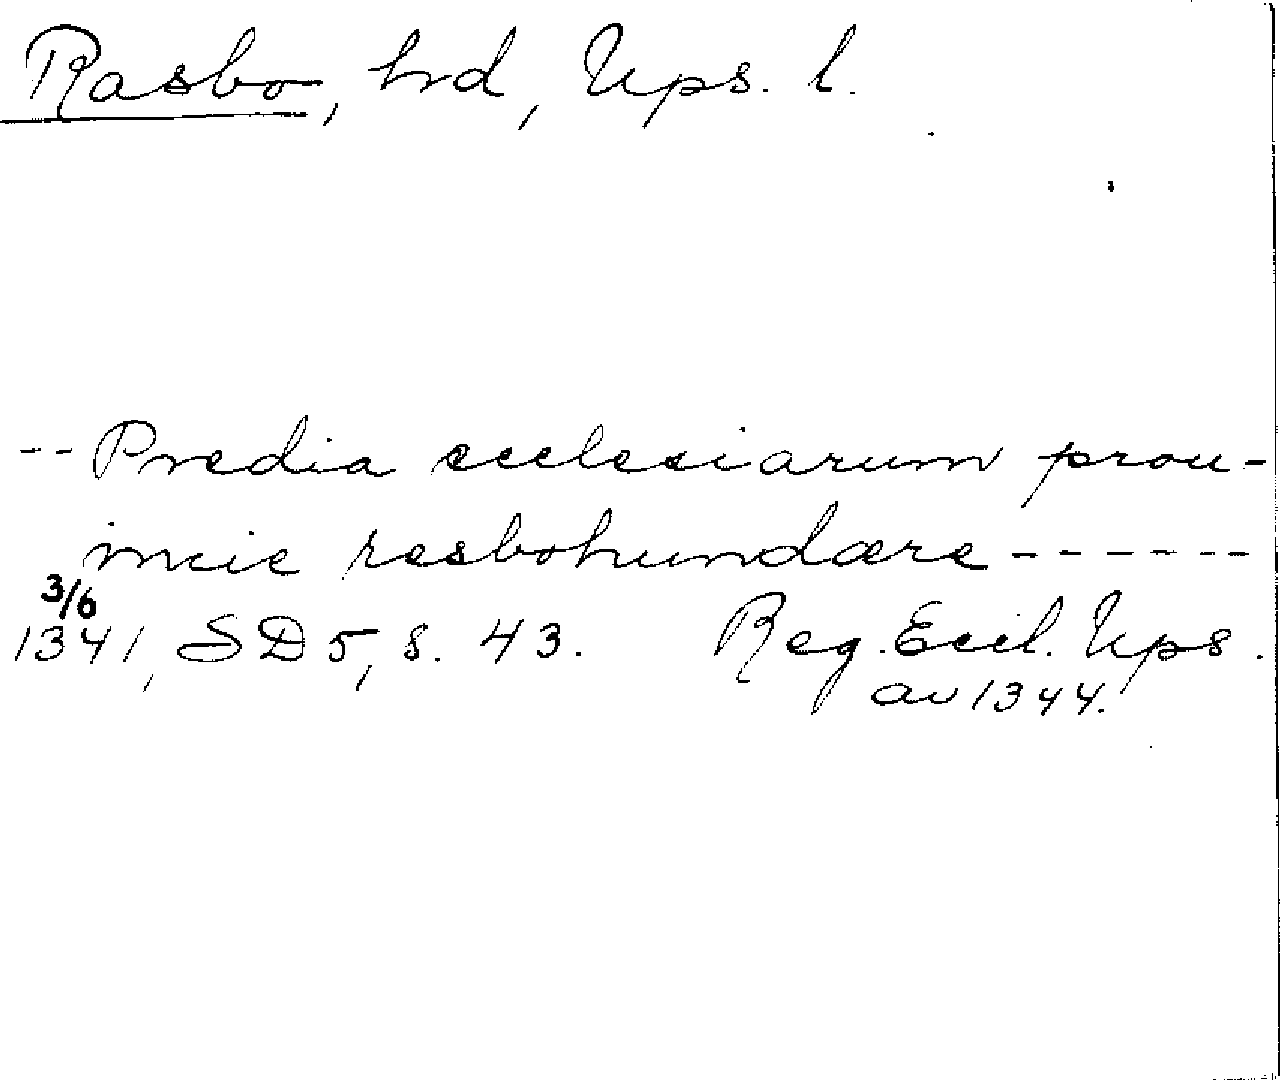 Rasbo, hd, Ups. l.
-- Predia ecclesiarum prou-
incie resbohundære ------
3/6
1341, SD 5, s. 43. Reg. Eccl. Ups.
av 1344.